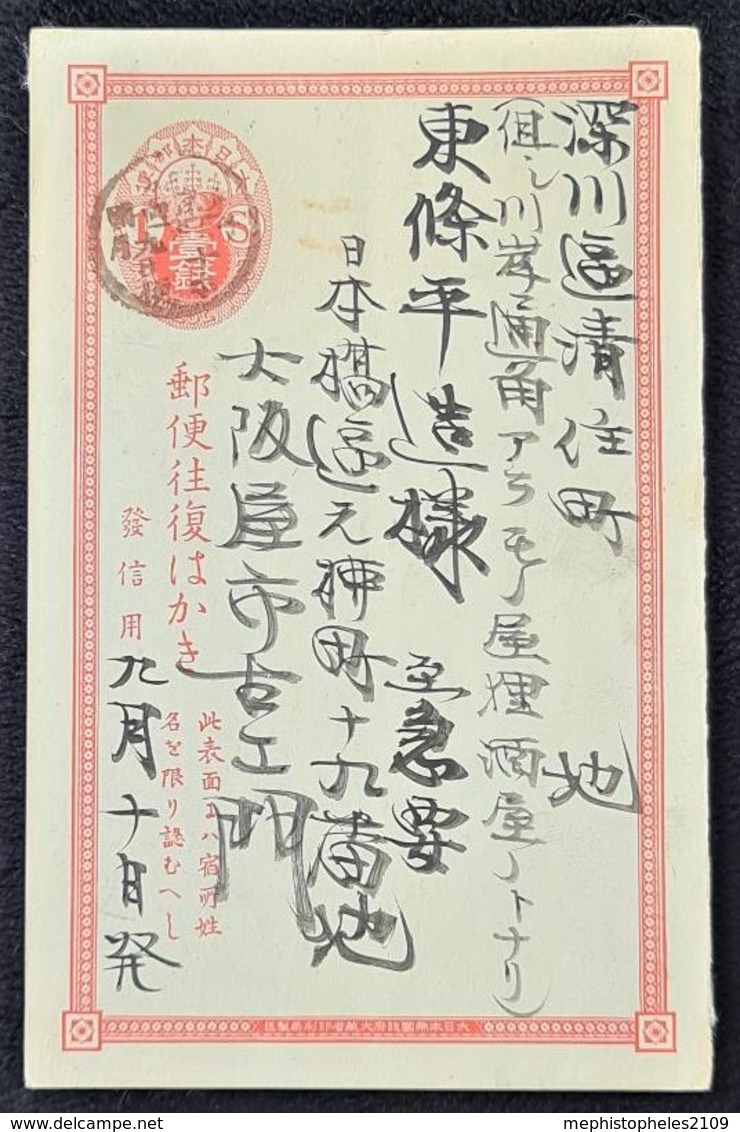 深川區清住町　地
(但シ川岸通角アラモノ屋 酒屋ノトナリ)
東條平造様　至急要
日本橋區元 町十九番地
大阪屋市右エ門
大日本 郵便
1 S
壹錢
郵便往復はかき
發信用
此表面ニハ宿所姓
名を限り認むへし
九月十日発
大日本帝國政府大藏省印刷局製造
mephistopheles2109